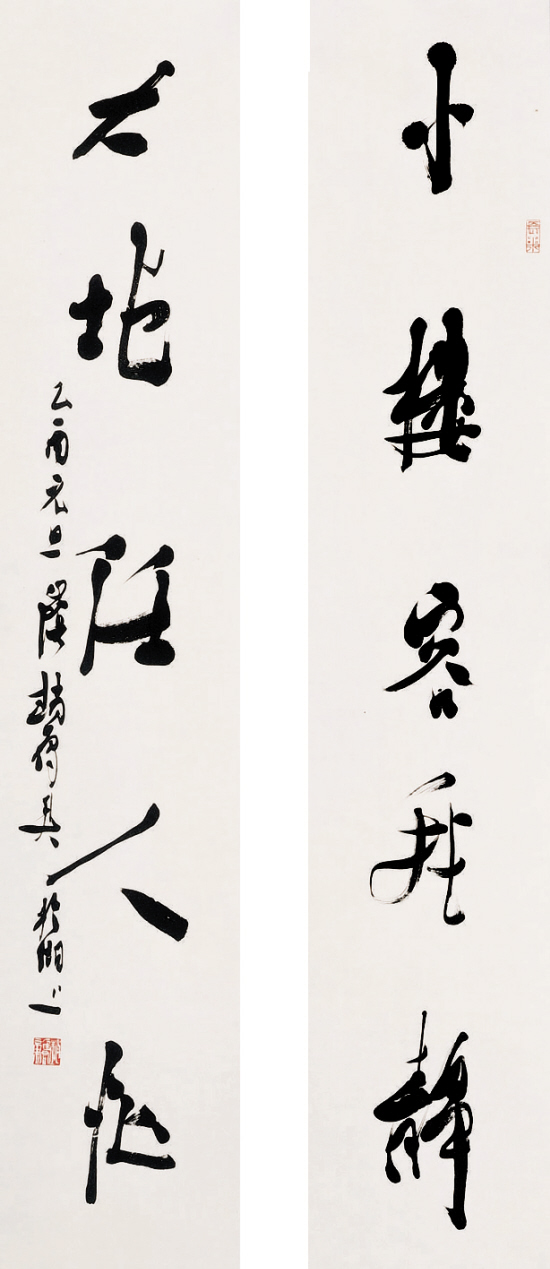 小樓容我靜
大地任人忙
乙酉元旦 於湖上